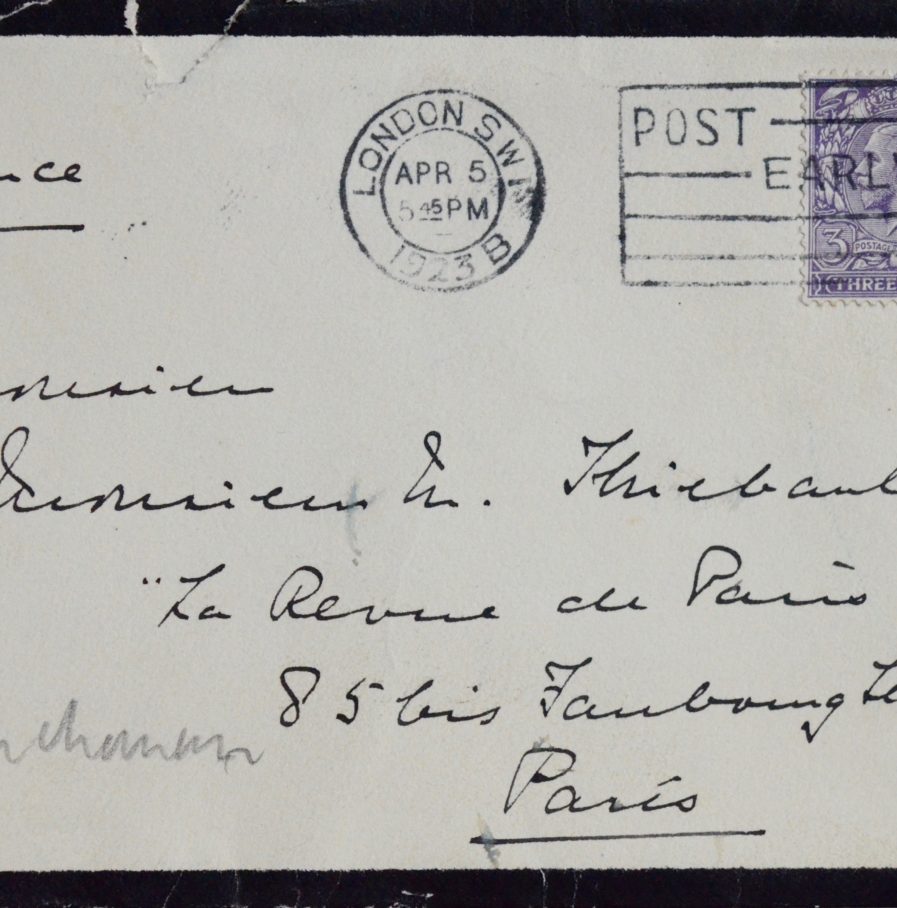 LONDON S.W.1
APR 5
5 45 PM
1923 B
POST
EARLY
3
POSTAGE
THREE
nce
onsieur
Monsieur M. Thiebaul
"La Revue de Paris
85 bis Faubourg
Paris